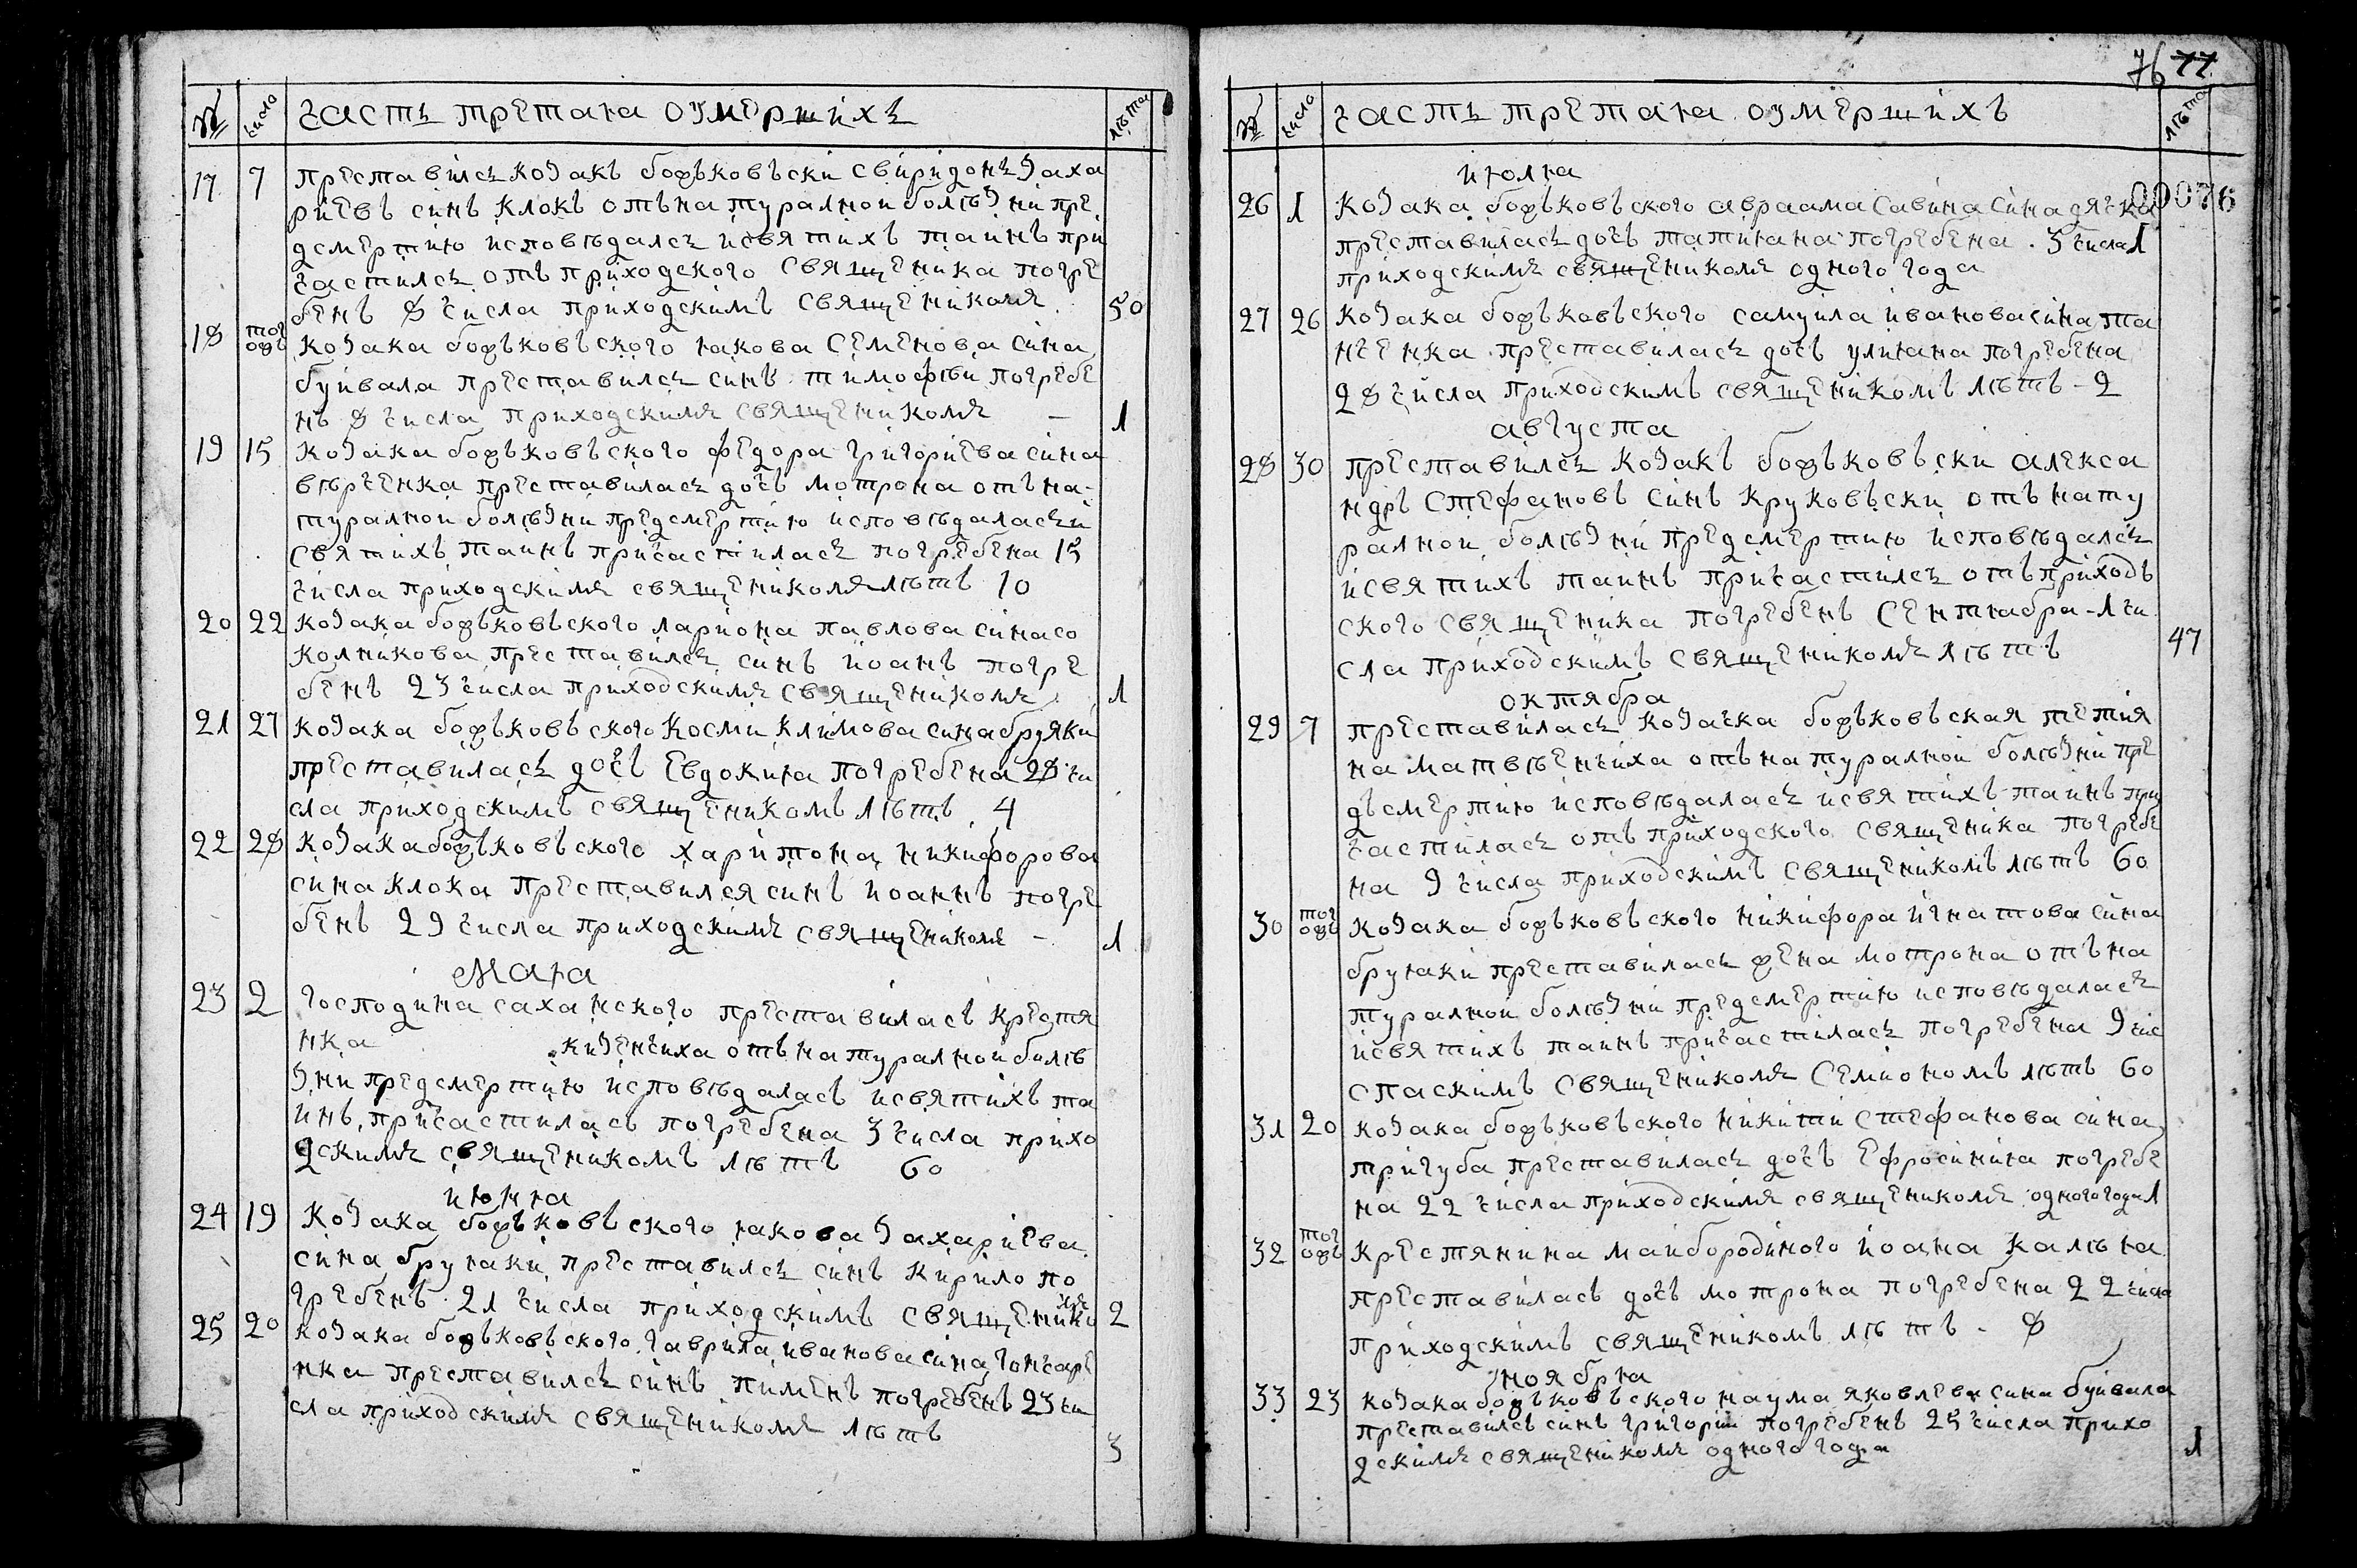 № число часть третаꙗ оумершихъ лѣта
17 7 преставилсь козакъ божъковъски свиридонъ заха
риевъ синъ клокъ отъ натуралной болѣзни пре
дсмертию исповѣдалсь исвятихъ таинъ при
частилсь отъ приходского священика погре
бенъ 8 числа приходскимъ священикомъ 50
18 тог ожъ козака божъковъского ꙗкова семенова сина
буивала преставилсь синъ тимофѣи погребе
нъ 8 числа приходскимъ священикомъ – 1
19 15 козака божъковъского федора григориева сина
вѣрченка преставилась дочъ мотрона отъ на-
туралнои болѣзни предсмертию исповѣдаласъ и
святихъ таинъ причастиласъ погребена 15
числа приходскимъ священикомъ лѣтъ 10
20 22 козака божъковъского лариона павлова сина со
колникова преставилсь синъ иоанъ погре
бенъ 23 числа приходскимъ священикомъ 1
21 27 козака божъковъского косми климова сина бруяки
преставиласъ дочъ евдокиꙗ погребена 28 чи
сла приходскимъ священикомъ лѣтъ 4
22 28 козака божъковъского харитона никифорова
сина клока преставился синъ иоаннъ погре
бенъ 29 числа приходскимъ священикомъ – 1
маꙗ
23 2 господина саханского преставиласъ крестя
нка кизенчиха отъ натуралнои болѣ
зни предсмертию исповѣдаласъ исвятихъ та
инъ причастилась погребена 3 числа прихо
дскимъ священикомъ лѣтъ 60
июнꙗ
24 19 козака божъковъского ꙗкова захариева
сина бруꙗки преставилсь синъ кирило по
гребенъ 21 числа приходскимъ священико
мъ 2
25 20 козака божъковъского гаврила иванова сина гончаре
нка преставилсь синъ пименъ погребенъ 23 чи
сла приходскимъ священикомъ лѣтъ 3
76 77
№ число часть третаꙗ оумершихъ лѣта
июлꙗ
00076
26 1 козака божъковъского авраама савина сина дячка
преставиласъ дочъ татиꙗна погребена 3 числа 1
приходскимъ священикомъ одного года
27 26 козака божъковъского самуила иванова сина та
нченка преставиласъ дочъ улиꙗна погребена
28 числа приходскимъ священикомъ лѣтъ – 2
августа
28 30 преставилсь козакъ божъковъски алекса
ндръ стефановъ синъ круковъски отъ нату
ралнои болѣзни предсмертию исповѣдалсь
исвятихъ таинъ причастилсь отъ приходъ
ского священика погребенъ сентꙗбра – 1 чи
сла приходскимъ священикомъ лѣтъ 47
октября
29 7 преставиласъ козачка божъковъская тетия
на матвѣенчиха отъ натуралнои болѣзни пре
дъсмертию исповѣдаласъ исвятихъ таинъ при
частиласъ отъ приходского священика погребе
на 9 числа приходскимъ священикомъ лѣтъ 60
30 тог ожъ козака божъковъского никифора игнатова сина
бруꙗки преставиласъ жена мотрона отъ на
туралнои болѣзни предсмертию исповѣдаласъ
исвятихъ таинъ причастиласъ погребена 9 чис
спаскимъ священикомъ семиономъ лѣтъ 60
31 20 козака божъковъского никити стефанова сина
тригуба преставиласъ дочъ ефросиниꙗ погребе
на 22 числа приходскимъ священикомъ одного года 1
32 тог ожъ крестянина маибородиного иоана калѣꙗ
преставиласъ дочъ мотрона погребена 22 числа
приходскимъ священикомъ лѣтъ – 8
ноябрꙗ
33 23 козака божъковъского наума яковлева сина буивала
преставилсь синъ григории погребенъ 25 числа прихо
дскимъ священикомъ одного года 1